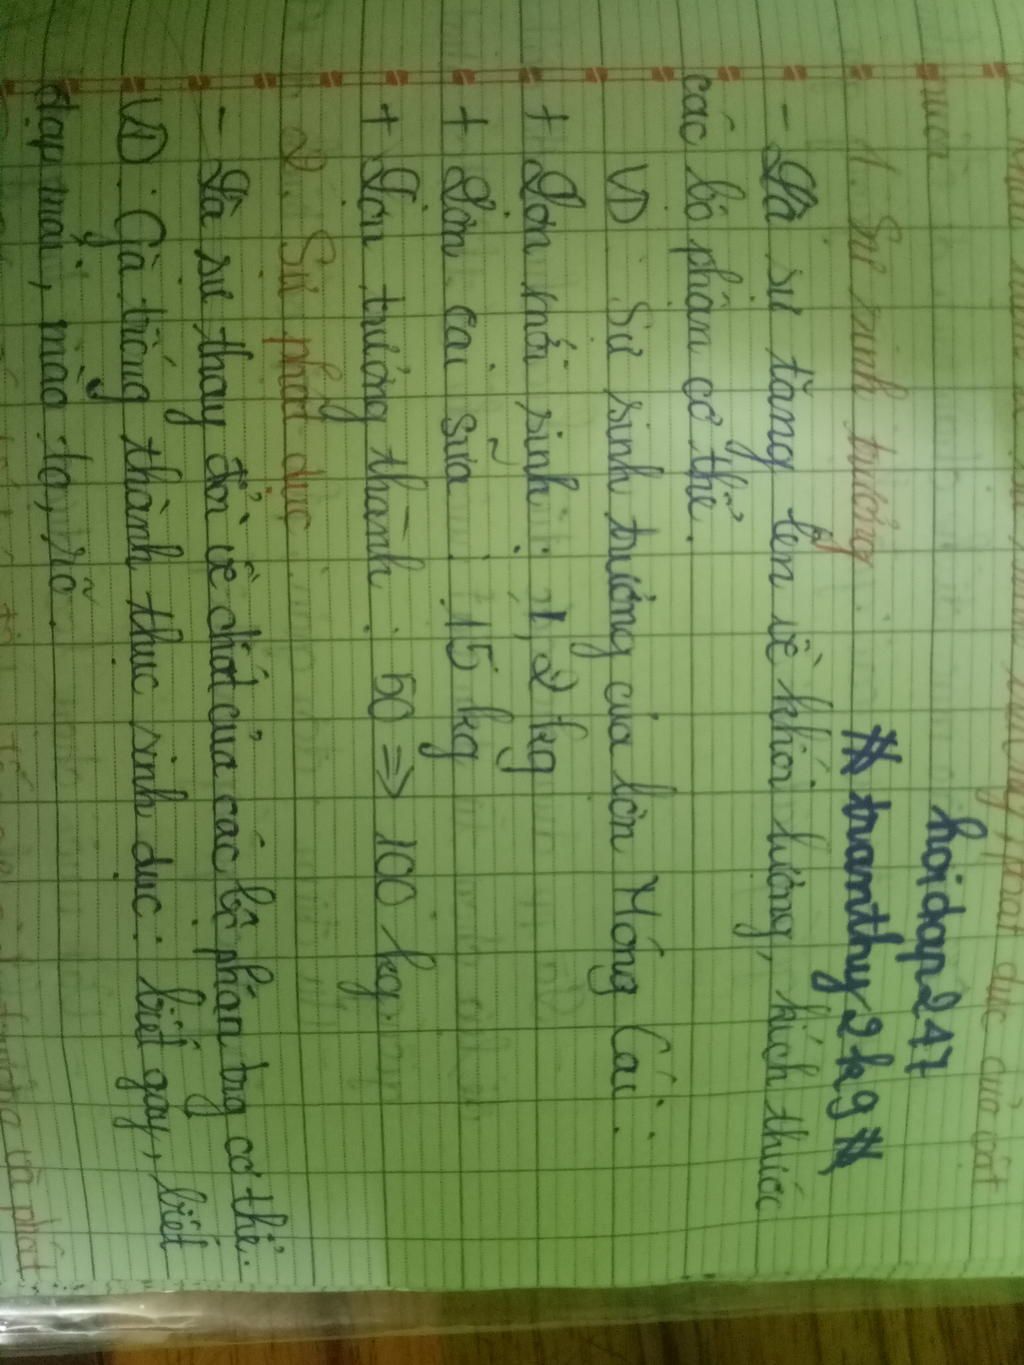 phát dục của vật
nuôi
hoidap247
1. Sự sinh trưởng
# tranthy2kg #
- Là sự tăng lên về khối lượng, kích thước
các bộ phận cơ thể.
VD Sự sinh trưởng của lợn Móng Cái:
+ Lợn mới sinh: 1,2 kg
+ Lợn cai sữa: 15 kg
+ Lợn trưởng thành: 50 => 100 kg.
2. Sự phát dục
- Là sự thay đổi về chất của các bộ phận trg cơ thể.
VD: Gà trống thành thục sinh dục: biết gáy, biết
đạp mái, mào to, rõ.